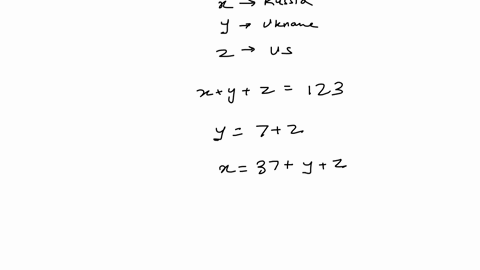 x → Russia
y → Ukraine
z → US
x + y + z = 123
y = 7 + z
x = 37 + y + z